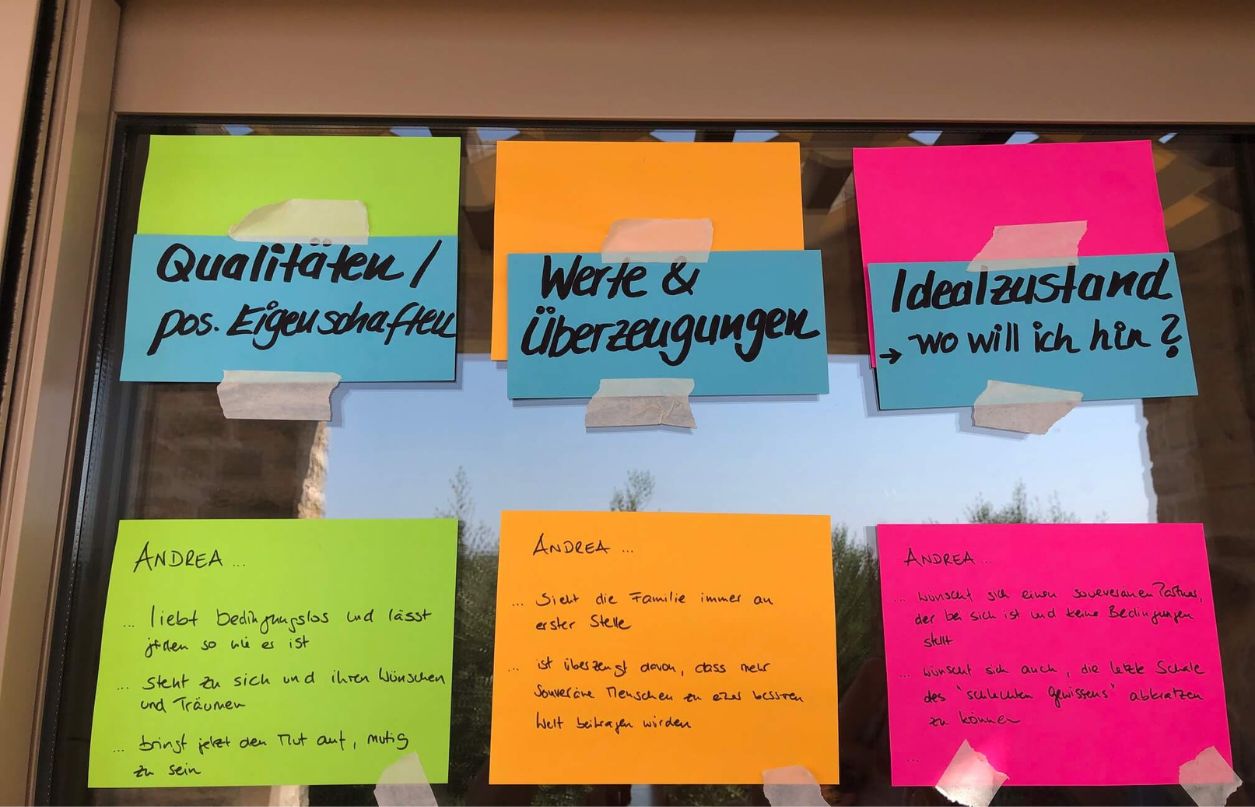 Qualitäten /
pos. Eigenschaften
Werte &
Überzeugungen
Idealzustand
→ wo will ich hin?
ANDREA ...
... liebt bedingungslos und lässt
jeden so wie es ist
... steht zu sich und ihren Wünschen
und Träumen
... bringt jetzt den Mut auf, mutig
zu sein
ANDREA ...
... sieht die Familie immer an
erster Stelle
... ist überzeugt davon, dass mehr
souveräne Menschen zu einer besseren
Welt beitragen würden
ANDREA ...
... wünscht sich einen souveränen Partner,
der bei sich ist und keine Bedingungen
stellt
... wünscht sich auch, die letzte Schale
des "schlechten Gewissens" abkratzen
zu können
...